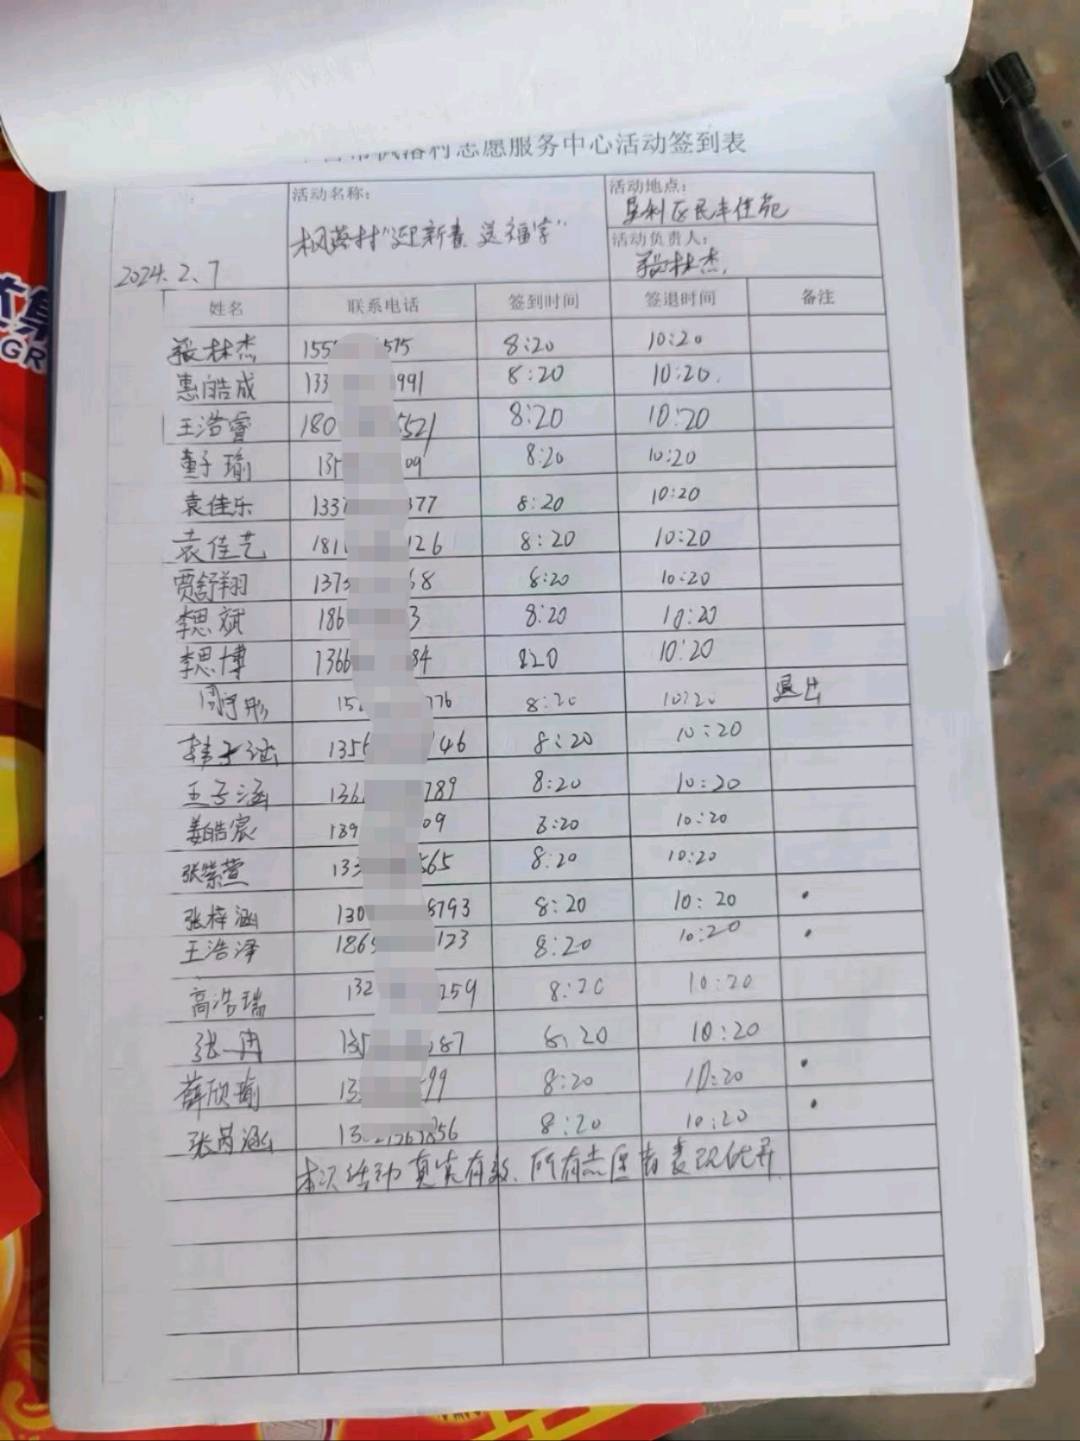 志愿服务中心活动签到表
2024.2.7
活动名称:
"迎新春 送福字"
活动地点:
垦利区民丰佳苑
活动负责人:
张林杰
姓名 联系电话 签到时间 签退时间 备注
张林杰 155 575 8:20 10:20
惠皓成 133 991 8:20 10:20
王浩睿 180 5521 8:20 10:20
童子瑜 09 8:20 10:20
袁佳乐 133 377 8:20 10:20
袁佳艺 181 126 8:20 10:20
贾舒翔 137 68 8:20 10:20
李思斌 186 3 8:20 10:20
李思博 1366 84 820 10:20
周宇彤 15 776 8:20 10:20 退出
韩子涵 135 146 8:20 10:20
王子涵 136 789 8:20 10:20
姜皓宸 139 09 8:20 10:20
张紫萱 133 565 8:20 10:20
张梓涵 130 8793 8:20 10:20
王浩泽 186 123 8:20 10:20
高浩瑞 132 259 8:20 10:20
张冉 135 87 8:20 10:20
薛欣瑜 13 99 8:20 10:20
张芮涵 13 856 8:20 10:20
本次活动真实有效,所有志愿者表现优异
GR